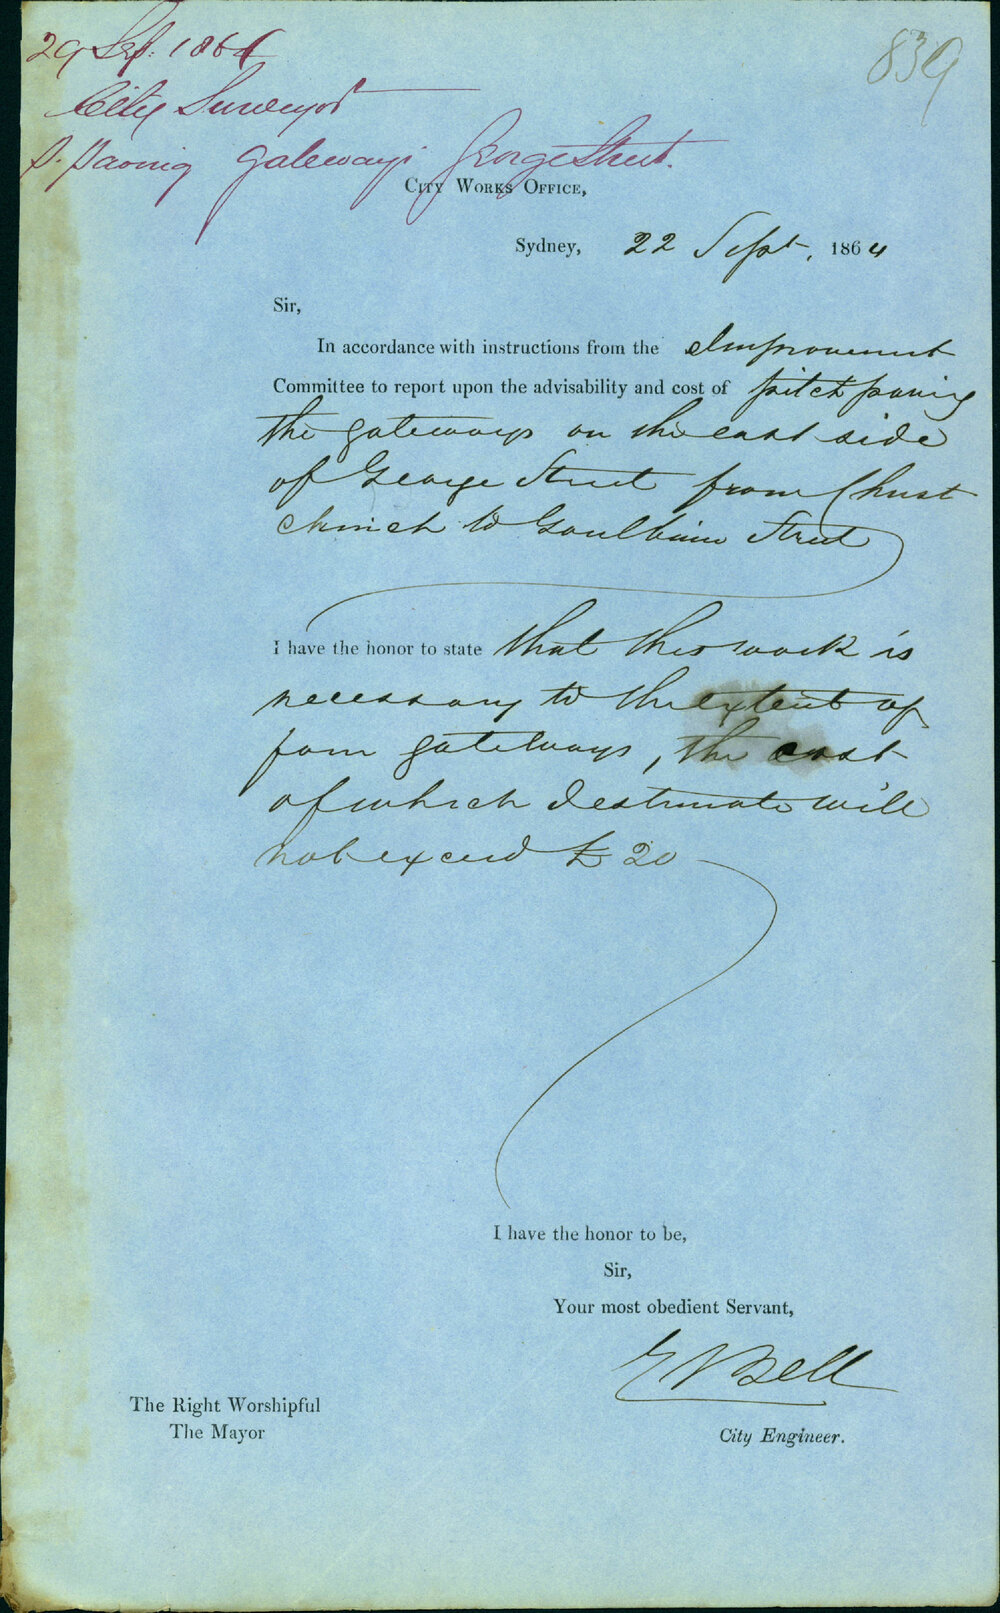 29 Sep. 1864
839
City Surveyor
P. Paving gateways George Street.
City Works Office,
Sydney, 22 Sept. 1864
Sir,
In accordance with instructions from the Improvement
Committee to report upon the advisability and cost of pitch paving
the gateways on the east side
of George Street from Christ
church to Goulburn Street
I have the honor to state that this work is
necessary to the extent of
four gateways, the cost
of which I estimate will
not exceed £20
I have the honor to be,
Sir,
Your most obedient Servant,
E Bell
The Right Worshipful
The Mayor
City Engineer.